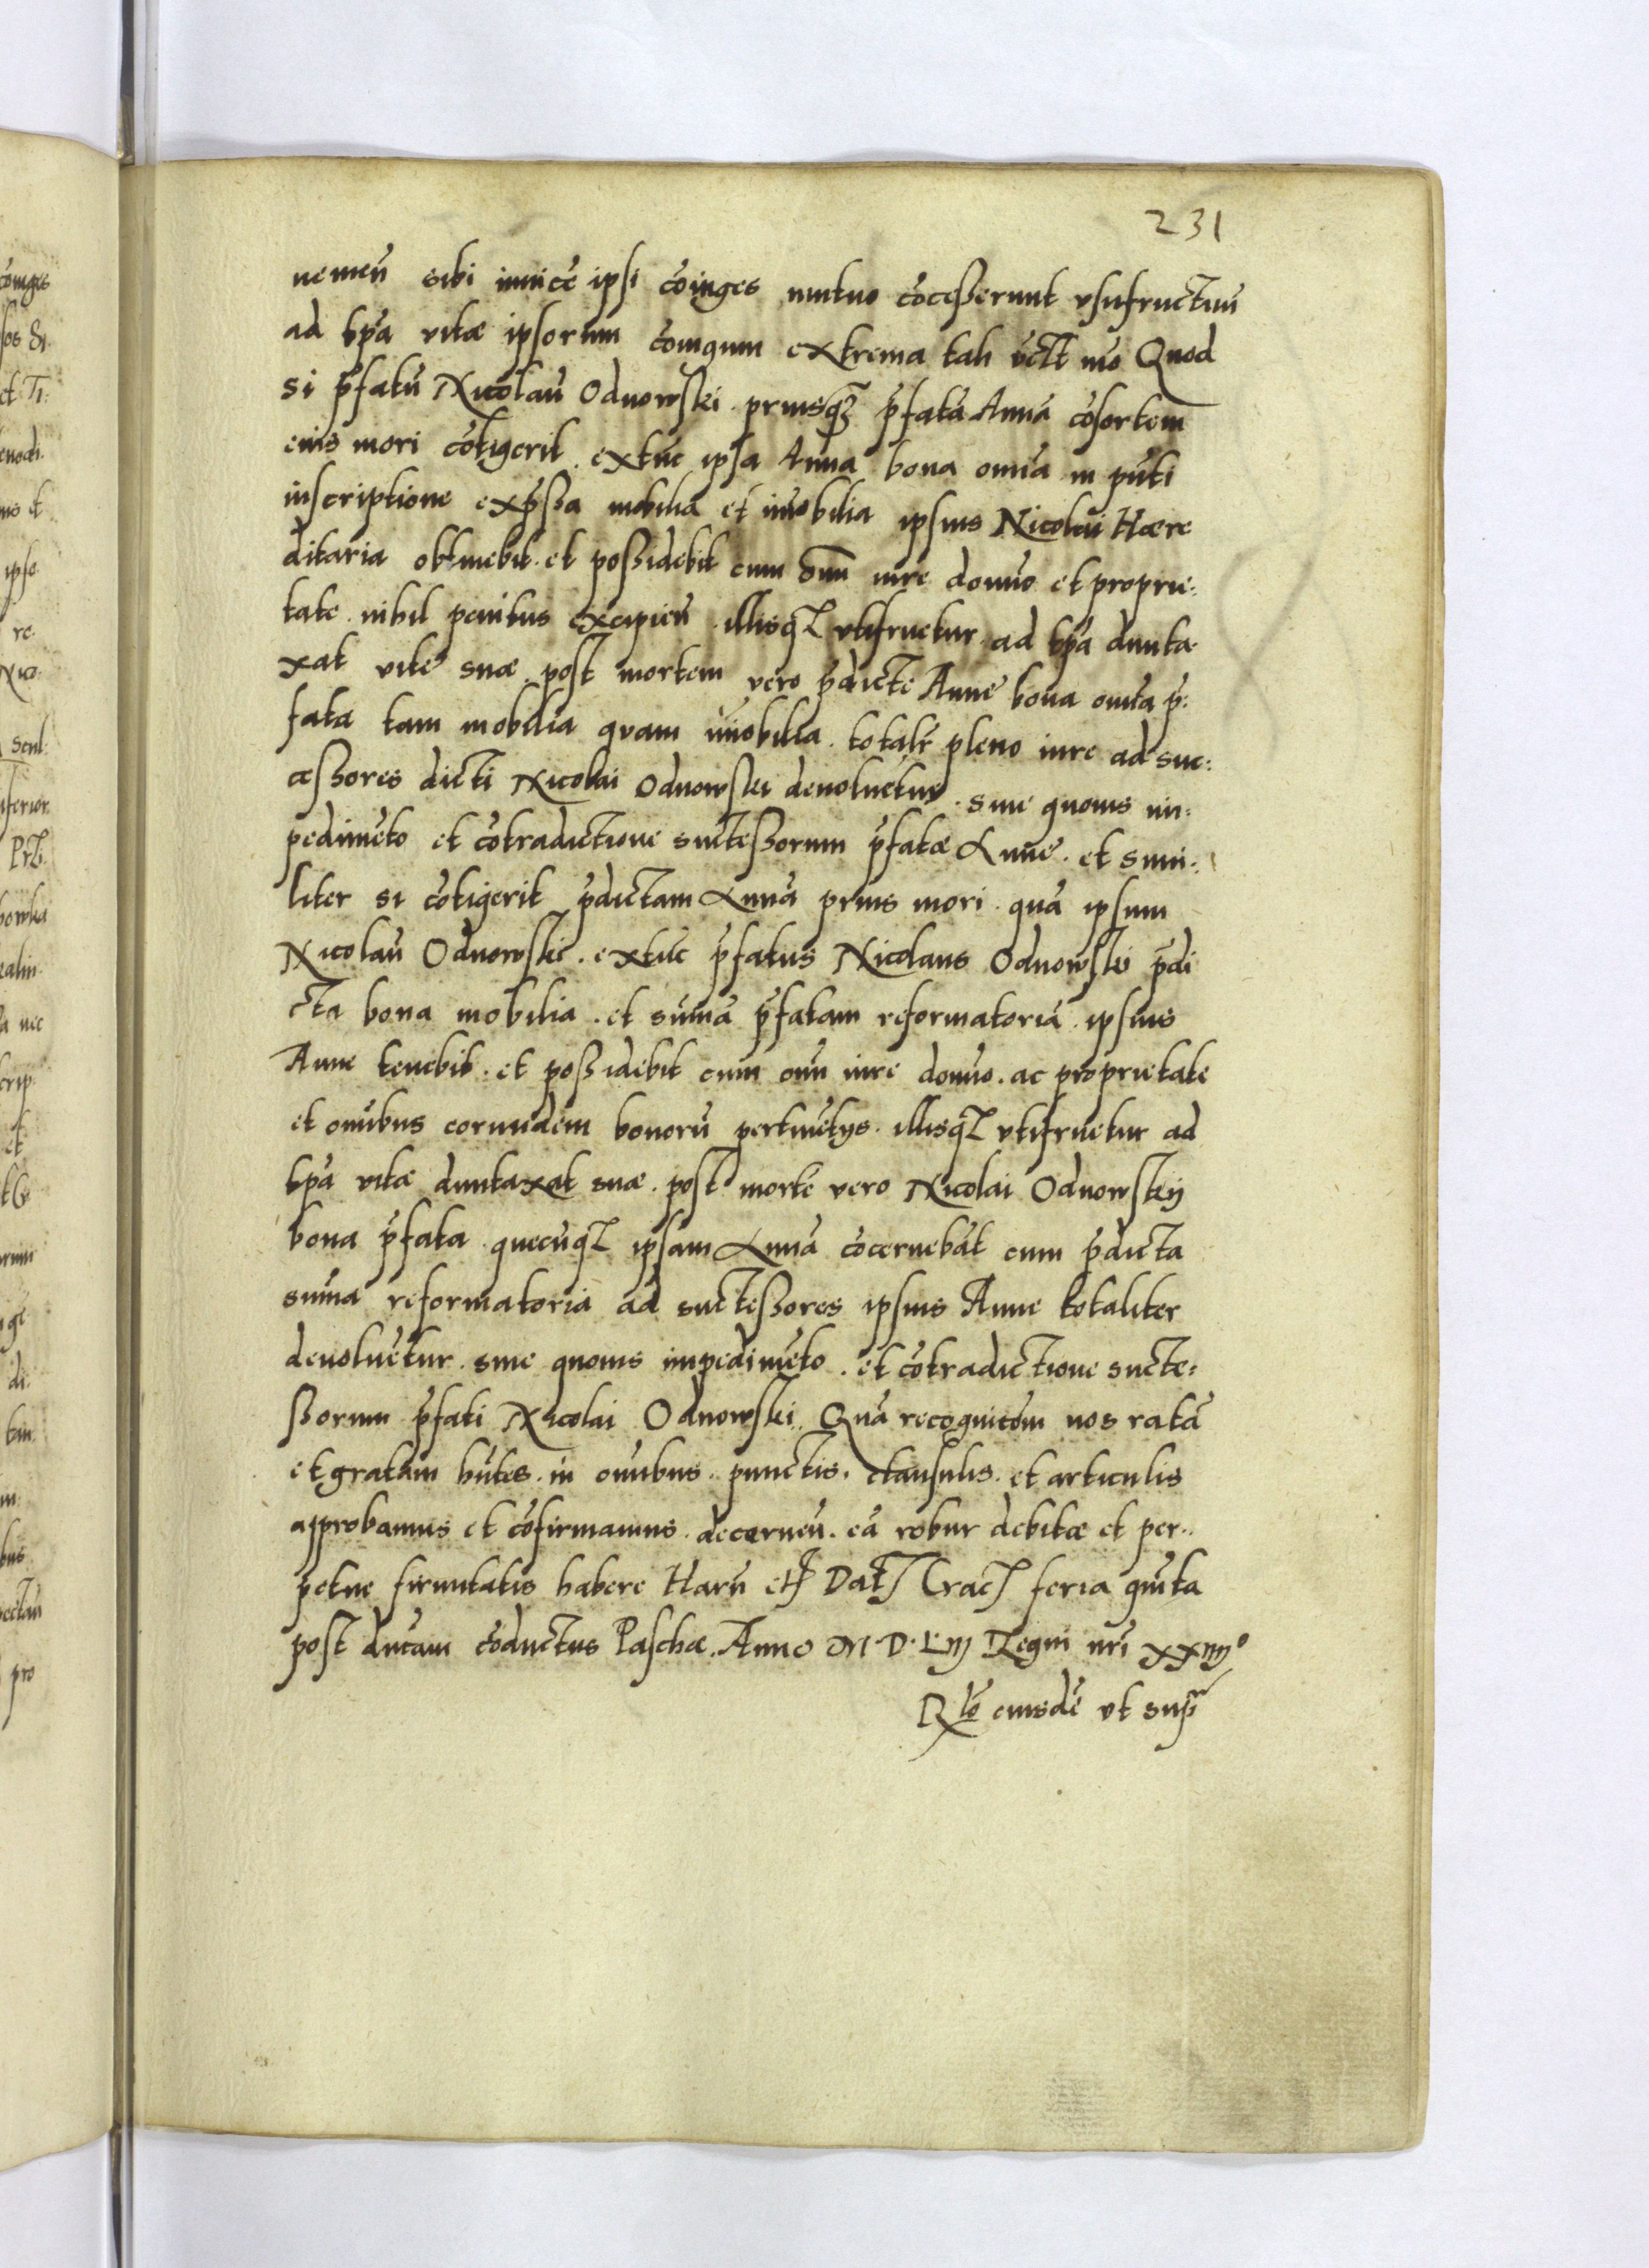 231
nemeń sibi inuicē ipsi cōiuges mutuo cōcesserunt vsufructuū
ad tp̄a vitæ ipsorum coniugum extrema tali mō Quod
si p̄fatū Nicolaū Odnowski priusq̃ p̄fatā Annā cōsortem
eius mori cōtigerit. extūc ipsa Anna bona omīa in pn̄ti
inscriptione exp̄ssa mobilia et imōbilia ipsius Nicolai Hære
ditaria obtinebit. et possidebit cum om̄i iure domīo et proprie:
tate. nihil penitus excipień illisq̃ vtifruetur ad tp̄a dunta
xat vite suæ. post mortem vero p̄dicte Anne bona omīa p̄:
fata tam mobilia quam īmobilia. totalr̄ pleno iure ad suc:
cessores dicti Nicolai Odnowski deuoluētur. sine quouis im:
pedimēto et cōtradictione suctessorum p̄fatæ Anne. et simi:
liter si cōtigerit p̄dictam Annā prius mori. quā ipsum
Nicolaū Odnowski. extūc p̄fatus Nicolaus Odnowski p̄di
cta bona mobilia. et sūmā p̄fatam reformatoriā ipsius
Anne tenebit. et possidebit cum om̄i iure domīo. ac proprietate
et omībus eorundem bonorū pertinētys. illisq̃ vtifruetur ad
tp̄a vitæ duntaxat suæ. post mortē vero Nicolai Odnowskij
bona p̄fata quecūq̃ ipsam Annā cōcernebāt cum p̄dicta
sūma reformatoria ad suctessores ipsius Anne totaliter
deuoluētur. sine quouis impedimēto. et cōtradictione sucte:
ssorum p̄fati Nicolai Odnowski. Quā recognicōm nos ratā
et gratam hn̄tes. in omībus. punctis. clausulis. et articulis
approbamus et cōfirmamus. decerneń. eā robur debitæ et per:
petue firmitatis habere Harū etc Dat Crac feria quīta
post dn̄icam cōductus Paschæ. Anno M. D. Liij Regni nr̄i xxiiij°
Rlō eiusdē vt sup